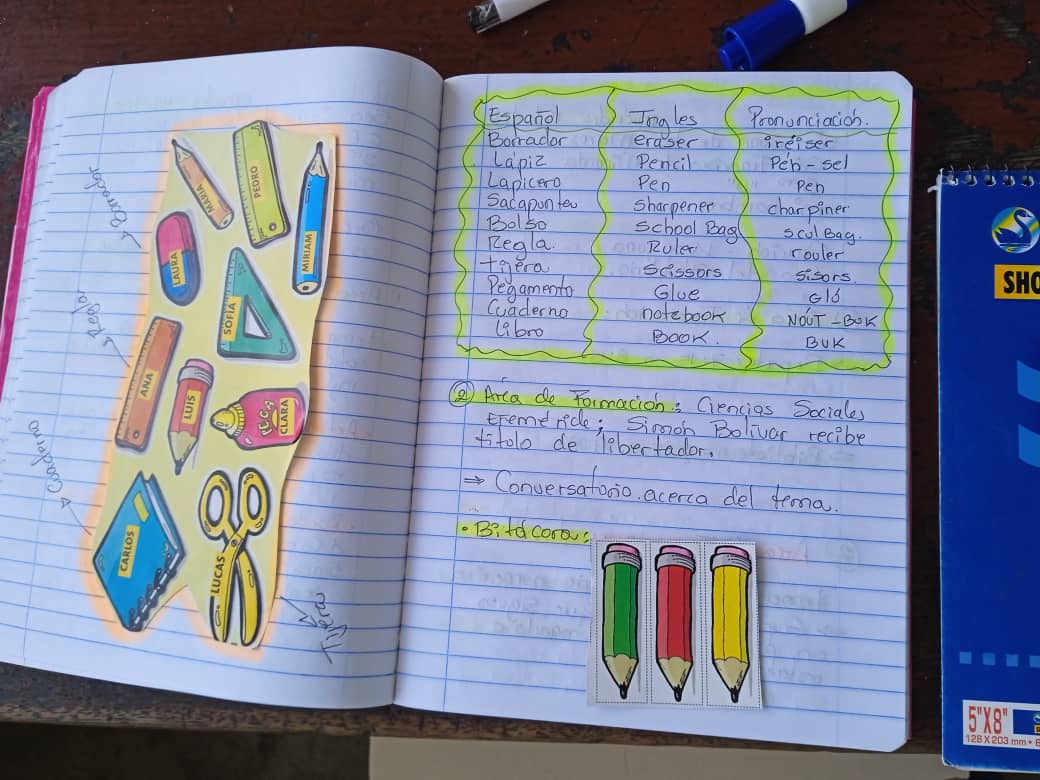 Borrador
Regla
Cuaderno
Tijeras
MARIA
PEDRO
MIRIAM
LAURA
SOFÍA
ANA
LUIS
CLARA
CARLOS
LUCAS
Español Ingles Pronunciación.
Borrador eraser iréiser
Lápiz Pencil Pén-sel
Lapicero Pen Pen
Sacapuntea sharpener charpiner
Bolso School Bag scul Bag.
Regla. Ruler rouler
tijera Scissors sisors.
Pegamento Glue Glú
Cuaderno notebook NÓUT-BUK
Libro BOOK. BUK
② Área de Formación: Ciencias Sociales
Efeméride; Simón Bolívar recibe
titolo de libertador.
→ Conversatorio. acerca del tema.
• Bitácora:
SHO
5"X8"
128 X 203 mm •